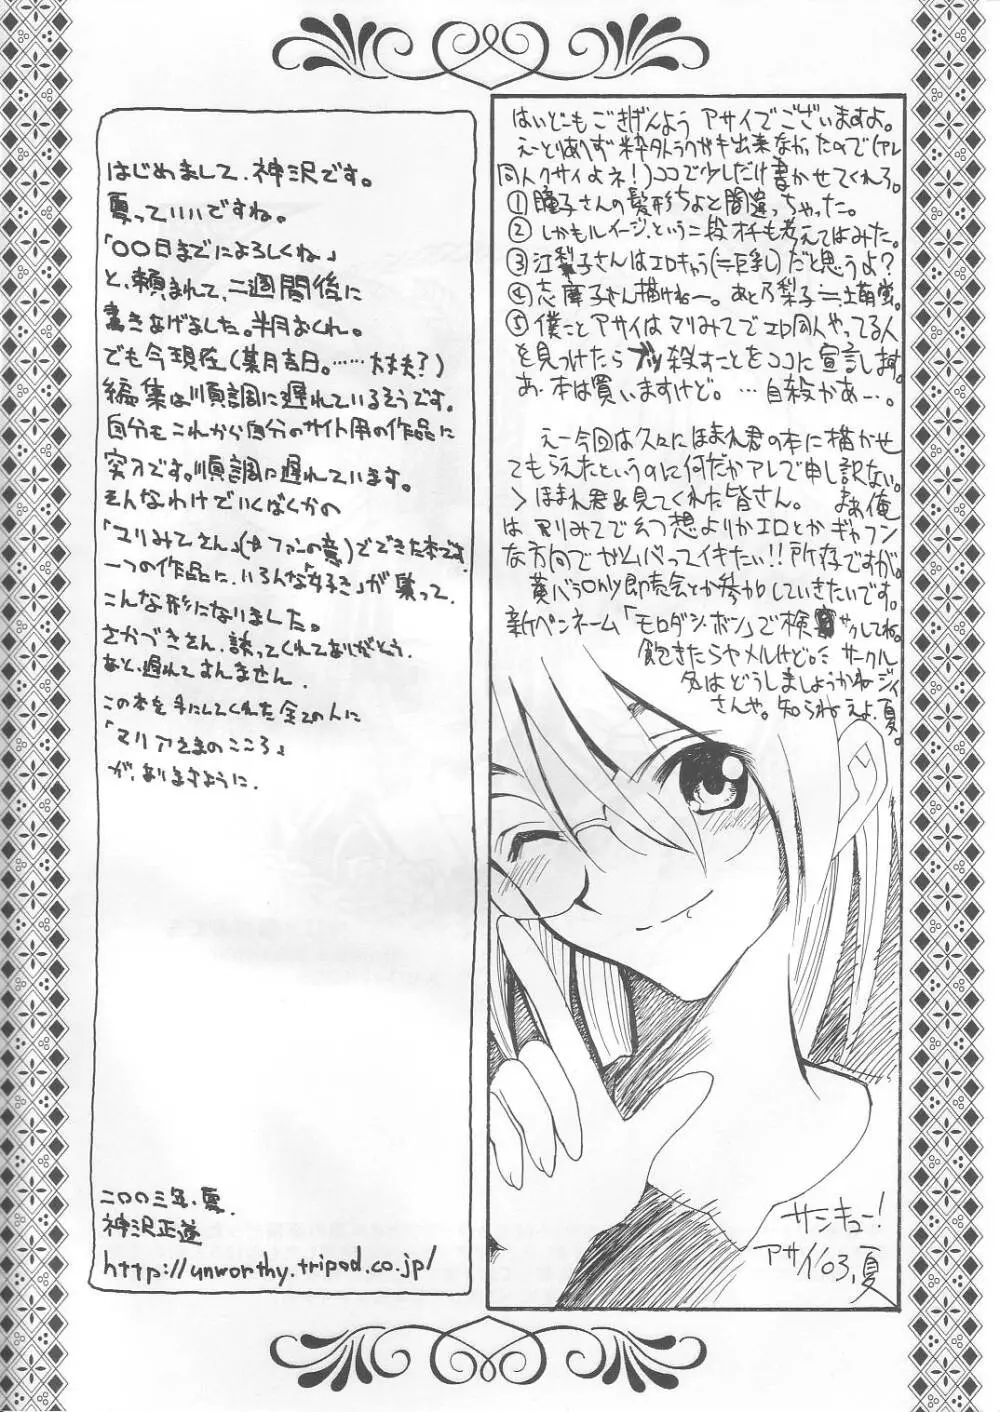 はいどーもごきげんよう アサイでございますよ。
えーとりあえず粋外ラクガキ出来なかったので(アレ
同人クサイよネ!)ココで少しだけ書かせてくれろ。
① 瞳子さんの髪形ちょと間違っちゃった。
② しかもルイージ、という二段オチも考えてはみた。
③ 江梨子さんはエロキャラ(=巨乳)だと思うよ?
④ 志摩子さん描けねー。あと乃梨子=土萌蛍。
⑤ 僕ことアサイはマリみてでエロ同人やってる人
を見つけたらブッ殺すことをココに宣言します。
あ、本は買いますけど。…自殺かぁ…。
えー今回は久々にほまれ君の本に描かせ
てもらえたというのに何だかアレで申し訳ない。
>ほまれ君&見てくれた皆さん。 まぁ俺
は マリみてで幻想よりかエロとかギャフン
な方向でガムバってイキたい!!所存ですが。
黄バラロサ即売会とか参加していきたいです。
新ペンネーム「モロダシ・ボン」で検索ヤクしてね。
飽きたらヤメルけど。ミ サークル
名はどうしましょうかねジイ
さんや。知らねえよ、夏。
サンキュー!
アサイ'03.夏
はじめまして、神沢です。
夏っていいですね。
「〇〇日までによろしくね」
と、頼まれて、二週間後に
書きあげました。半月おくれ。
でも今現在(某月吉日。……大丈夫?)
編集は順調に遅れているそうです。
自分もこれから自分のサイト用の作品に
突入です。順調に遅れています。
そんなわけでいくばくかの
「マリみてさん」(※ファンの意)でできた本です。
一つの作品に、いろんな「好き」が集って、
こんな形になりました。
さかづきさん、誘ってくれてありがとう。
あと、遅れてすんません。
この本を手にしてくれた全ての人に
「マリアさまのこころ」
が、ありますように。
二〇〇三年、夏。
神沢正道
http://unworthy.tripod.co.jp/